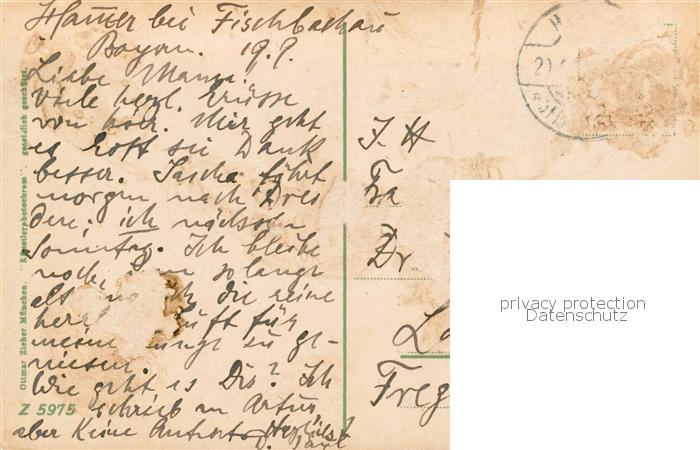 Hammer bei Fischbachau
Bayern. 19.9.
Liebe Mama.
Viele herzl. Grüsse
von hier. Mir geht
es Gott sei Dank
besser. Sascha fährt
morgen nach Dres
den. ich nächsten
Sonntag. Ich bleibe
noch so lange
die reine
herrl. Luft für
meine Lunge zu ge-
niesen.
Wie geht es Dir? Ich
schrieb an Artur,
aber keine Antwort. Herzlichst
J. H
Fra
Dr.
La
Freg
21.
Ottmar Zieher München. "Künstlerphotochrom" gesetzlich geschützt.
Z 5975
privacy protection
Datenschutz